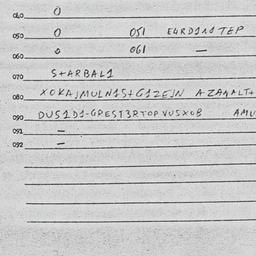 040 0
050 0 051 E4RD1A1 TEP
060 0 061 —
070 S+ARBAL1
080 XOKAJMULN1S+G1ZEJN AZAMALT+
090 DUS1D1-GREST3RTOP VUSXOB AMU
091 —
092 —